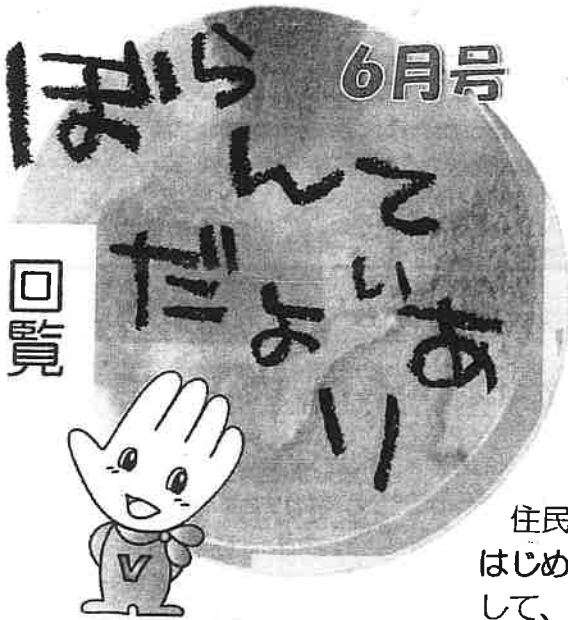 6月号
ぼらんてぃあ
だより
回覧
V
住民
はじめ
して、